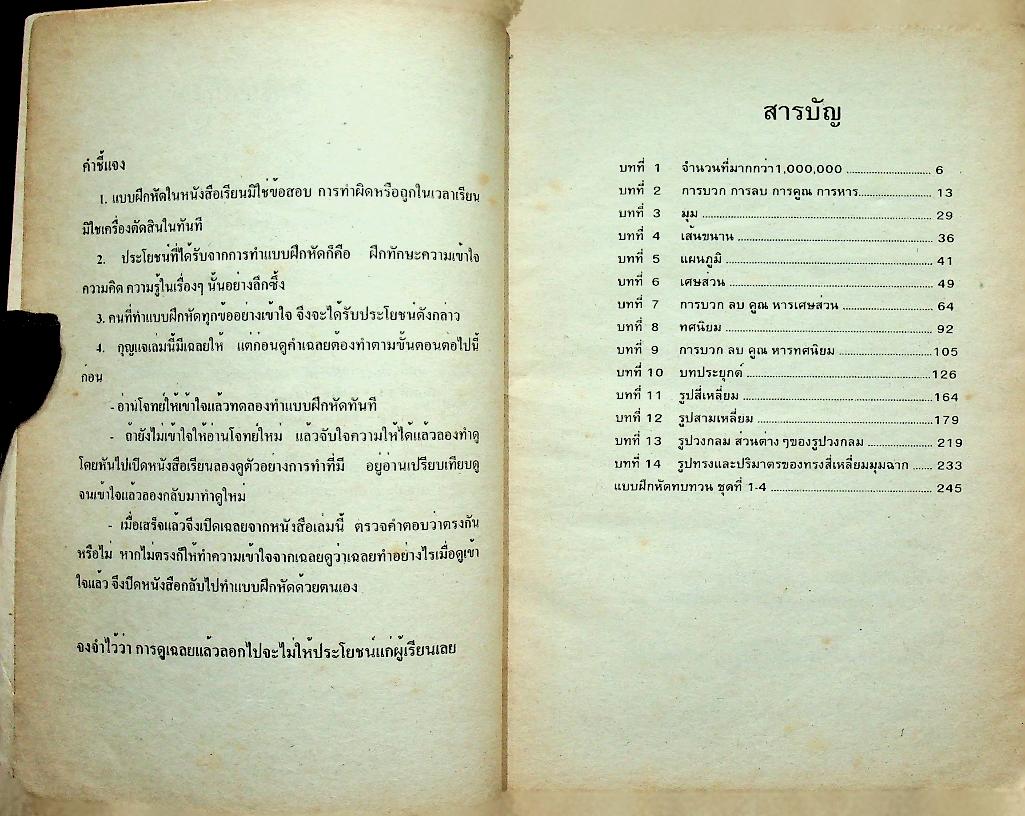 คำชี้แจง
1. แบบฝึกหัดในหนังสือเรียนมิใช่ข้อสอบ การทำผิดหรือถูกในเวลาเรียน
มิใช่เครื่องตัดสินในทันที
2. ประโยชน์ที่ได้รับจากการทำแบบฝึกหัดก็คือ ฝึกทักษะความเข้าใจ
ความคิด ความรู้ในเรื่องๆ นั้นอย่างลึกซึ้ง
3. คนที่ทำแบบฝึกหัดทุกข้ออย่างเข้าใจ จึงจะได้รับประโยชน์ดังกล่าว
4. กุญแจเล่มนี้มีเฉลยให้ แต่ก่อนดูคำเฉลยต้องทำตามขั้นตอนต่อไปนี้
ก่อน
- อ่านโจทย์ให้เข้าใจแล้วทดลองทำแบบฝึกหัดทันที
- ถ้ายังไม่เข้าใจให้อ่านโจทย์ใหม่ แล้วจับใจความให้ได้แล้วลองทำดู
โดยหันไปเปิดหนังสือเรียนลองดูตัวอย่างการทำที่มี อยู่อ่านเปรียบเทียบดู
จนเข้าใจแล้วลองกลับมาทำดูใหม่
- เมื่อเสร็จแล้วจึงเปิดเฉลยจากหนังสือเล่มนี้ ตรวจคำตอบว่าตรงกัน
หรือไม่ หากไม่ตรงก็ให้ทำความเข้าใจจากเฉลยดูว่าเฉลยทำอย่างไรเมื่อดูเข้า
ใจแล้ว จึงปิดหนังสือกลับไปทำแบบฝึกหัดด้วยตนเอง
จงจำไว้ว่า การดูเฉลยแล้วลอกไปจะไม่ให้ประโยชน์แก่ผู้เรียนเลย
สารบัญ
บทที่ 1 จำนวนที่มากกว่า1,000,000 ........................ 6
บทที่ 2 การบวก การลบ การคูณ การหาร........................ 13
บทที่ 3 มุม ........................ 29
บทที่ 4 เส้นขนาน ........................ 36
บทที่ 5 แผนภูมิ ........................ 41
บทที่ 6 เศษส่วน ........................ 49
บทที่ 7 การบวก ลบ คูณ หารเศษส่วน ........................ 64
บทที่ 8 ทศนิยม ........................ 92
บทที่ 9 การบวก ลบ คูณ หารทศนิยม ........................ 105
บทที่ 10 บทประยุกต์ ........................ 126
บทที่ 11 รูปสี่เหลี่ยม ........................ 164
บทที่ 12 รูปสามเหลี่ยม ........................ 179
บทที่ 13 รูปวงกลม ส่วนต่าง ๆของรูปวงกลม ........................ 219
บทที่ 14 รูปทรงและปริมาตรของทรงสี่เหลี่ยมมุมฉาก ...... 233
แบบฝึกหัดทบทวน ชุดที่ 1-4 ........................ 245